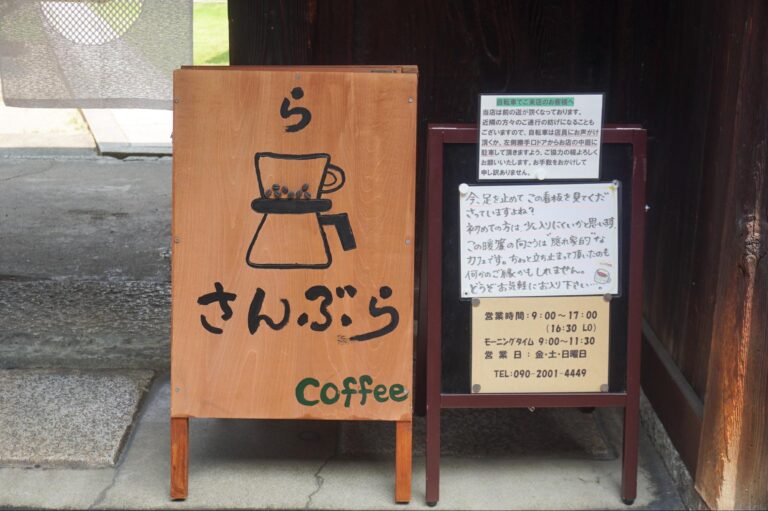 ら
さんぶら
Coffee
自転車でご来店のお客様へ
当店は前の道が狭くなっております。
近隣の方々のご通行の妨げになることも
ございますので、自転車は店員にお声がけ
頂くか、左側勝手口ドアからお店の中庭に
駐車して頂きますよう、ご協力の程よろしく
お願いいたします。お手数をおかけして
申し訳ありません。
今、足を止めてこの看板を見てくだ
さっていますよね?
初めての方は少し入りにくいかと思います
この暖簾の向こうは"隠れ家的"な
カフェです。ちょっと立ち止まって頂いたのも
何かのご縁かもしれません。
どうぞお気軽にお入り下さい…
営業時間:9:00~17:00
(16:30 LO)
モーニングタイム 9:00~11:30
営業日:金・土・日曜日
TEL:090-2001-4449